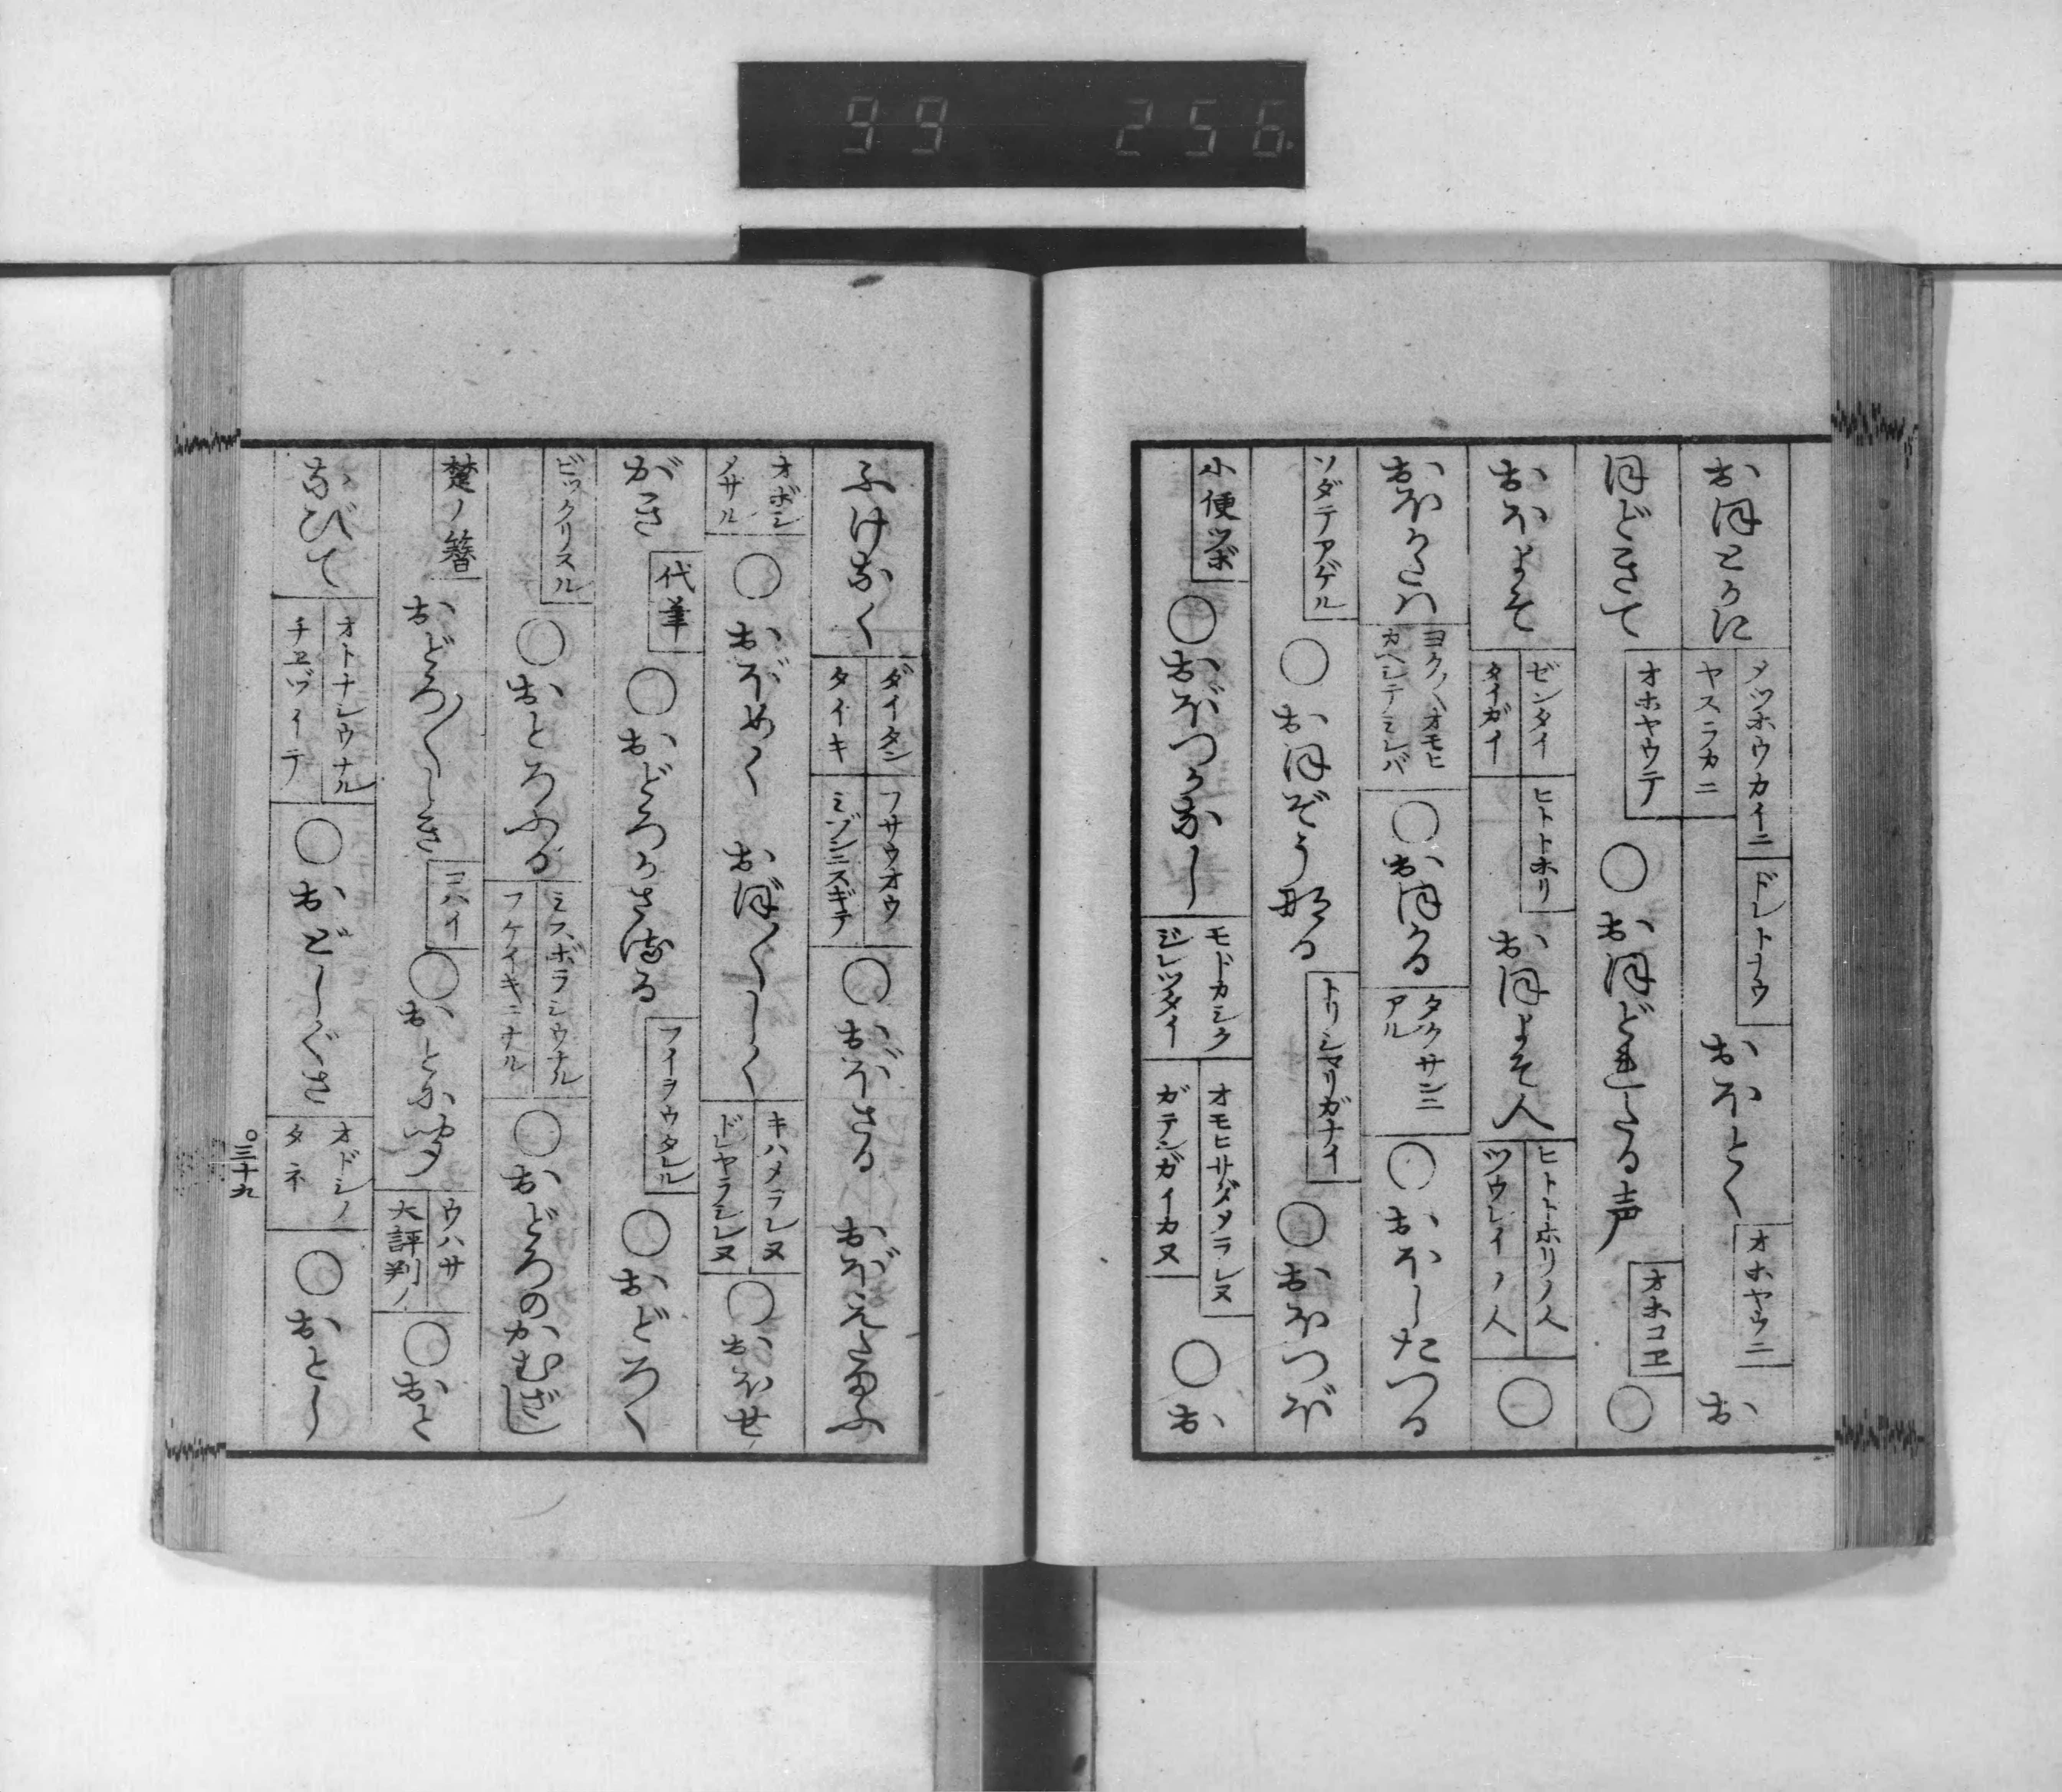 99 256
おほどかに メツホウカイニ ヤスラカニ ドレトナウ おほとく オホヤウニ お
ほどきて オホヤウテ ○おほどれたる声 オホコヱ ○
おほよそ ゼンタイ タイガイ ヒトトホリ おほよそ人 ヒトトホリノ人 ツウレイノ人 ○
おほかたは ヨク〳〵オモヒカヘシテミレバ ○おほかる タクサンニアル ○おほしたつる
ソダテアゲル ○おほぞう那る トリシマリガナイ ○おほつぼ
小便ツボ ○おぼつかなし モドカシク ジレツタイ オモヒサダメラレヌ ガテンガイカヌ ○お
ふけなく ダイタン タイキ フサウオウ ミブンニスギテ ○おぼさる おぼえたまふ
オボシメサル ○おぼめく おぼ〳〵しく キハメラレヌ ドレヤラシレヌ ○おほせ
がき 代筆 ○おどろかさるる フイヲウタレル ○おどろく
ビックリスル ○おとろふる ミスボラシウナル フケイキニナル ○おどろのかむざし
楚ノ簪 おどろ〳〵しき コハイ ○おとにきく ウハサ 大評判ノ ○おと
なびて オトナシウナル チヱヅイテ ○おどしぐさ オドシノタネ ○おとし
○三十九